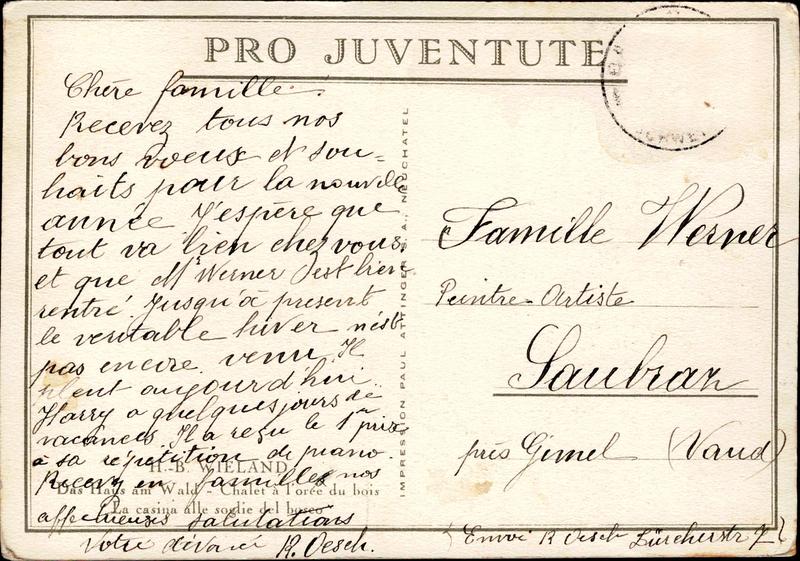 PRO JUVENTUTE
Chère famille!
Recevez tous nos
bons voeux et sou=
haits pour la nouvelle
année. J'espère que
tout va bien chez vous,
et que Mr Werner s'est bien
rentré. Jusqu'à présent
le veritable hiver n'est
pas encore venu. Il
pleut aujourd'hui.
Harry a quelques jours de
vacances. Il a reçu le 1er prix
à sa répétition de piano.
Recevez en familles nos
affectueuses salutations
Votre dévoué R. Oesch.
H.-B. WIELAND
Das Haus am Wald - Chalet à l'orée du bois
La casina alle soglie del bosco
IMPRESSION PAUL ATTINGER S.A., NEUCHATEL
Famille Werner
Peintre-Artiste
Saubraz
près Gimel (Vaud)
(Envoi R Oesch Zürcherstr 7)